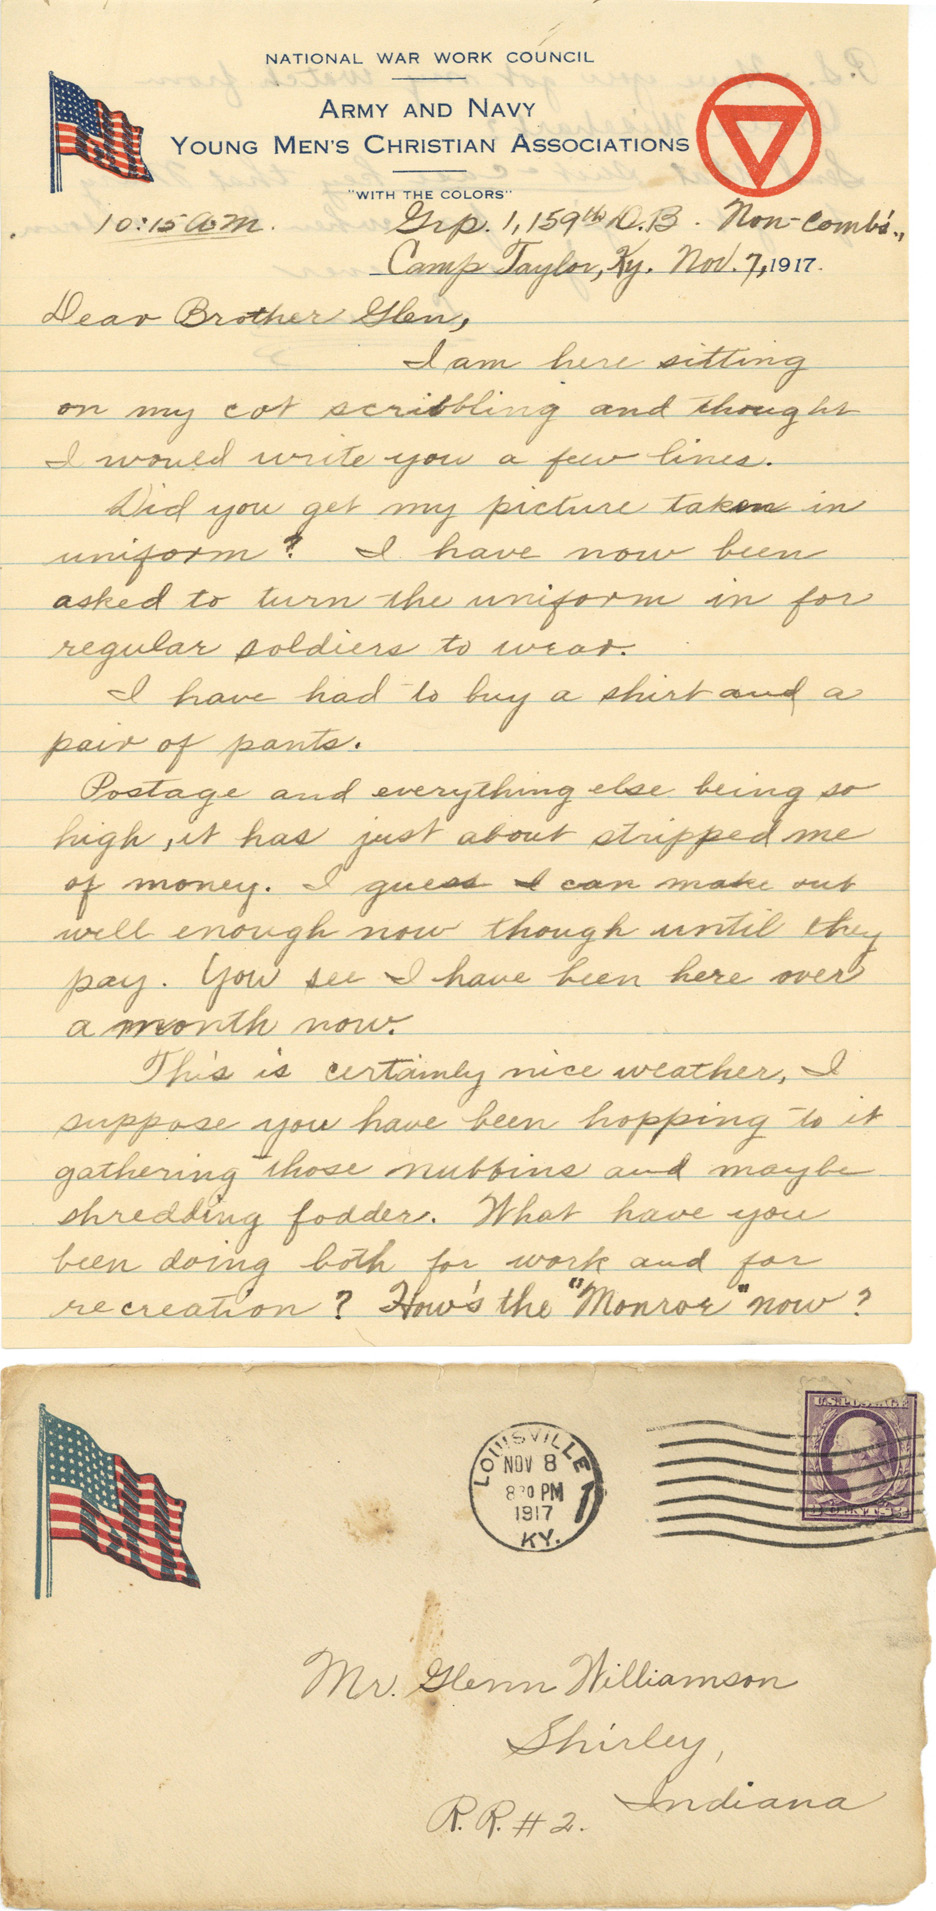 NATIONAL WAR WORK COUNCIL
ARMY AND NAVY
YOUNG MEN'S CHRISTIAN ASSOCIATIONS
"WITH THE COLORS"
10:15 A.M. Grp. 1, 159th D.B. Non-Comb's.,
Camp Taylor, Ky. Nov. 7, 1917.
Dear Brother Glen,
I am here sitting
on my cot scribbling and thought
I would write you a few lines.
Did you get my picture taken in
uniform? I have now been
asked to turn the uniform in for
regular soldiers to wear.
I have had to buy a shirt and a
pair of pants.
Postage and everything else being so
high, it has just about stripped me
of money. I guess I can make out
well enough now though until they
pay. You see I have been here over
a month now.
This is certainly nice weather, I
suppose you have been hopping to it
gathering those nubbins and maybe
shredding fodder. What have you
been doing both for work and for
recreation? How's the "Monroe" now?
LOUISVILLE
NOV 8
8 30 PM
1917
KY.
1
U.S. POSTAGE
3 CENTS 3
Mr. Glenn Williamson
Shirley,
Indiana
R.R. #2.